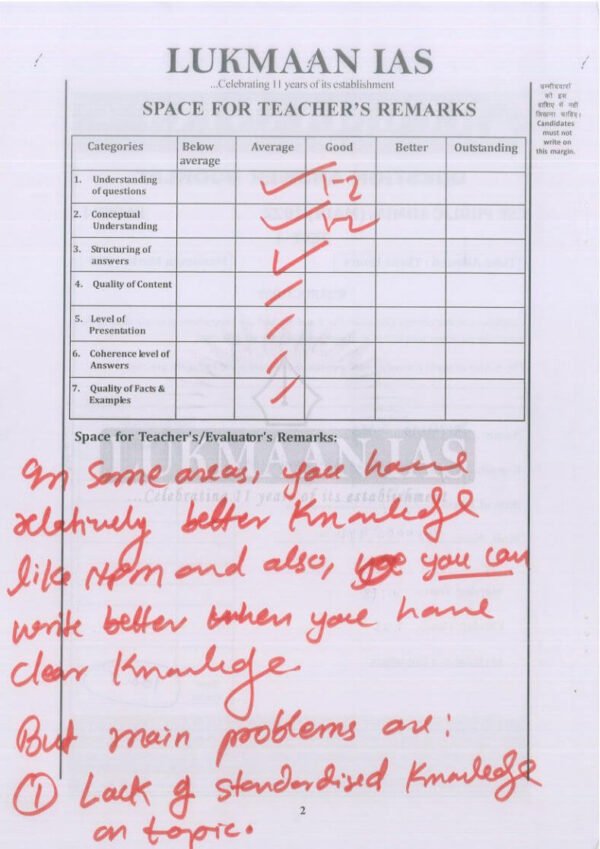 LUKMAAN IAS
...Celebrating 11 years of its establishment
SPACE FOR TEACHER'S REMARKS
उम्मीदवारों
को इस
हाशिए में नहीं
लिखना चाहिए।
Candidates
must not
write on
this margin.
Categories Below average Average Good Better Outstanding
1. Understanding of questions ✓ 1-2
2. Conceptual Understanding ✓ 1-2 ✓
3. Structuring of answers ✓
4. Quality of Content
5. Level of Presentation
6. Coherence level of Answers
7. Quality of Facts & Examples
Space for Teacher's/Evaluator's Remarks:
LUKMAAN IAS
...Celebrating 11 years of its establishment
In some areas, you have
relatively better knowledge
like NPM and also, you can
write better when you have
clear knowledge
But main problems are:
① Lack of standardised knowledge
on topic.
2